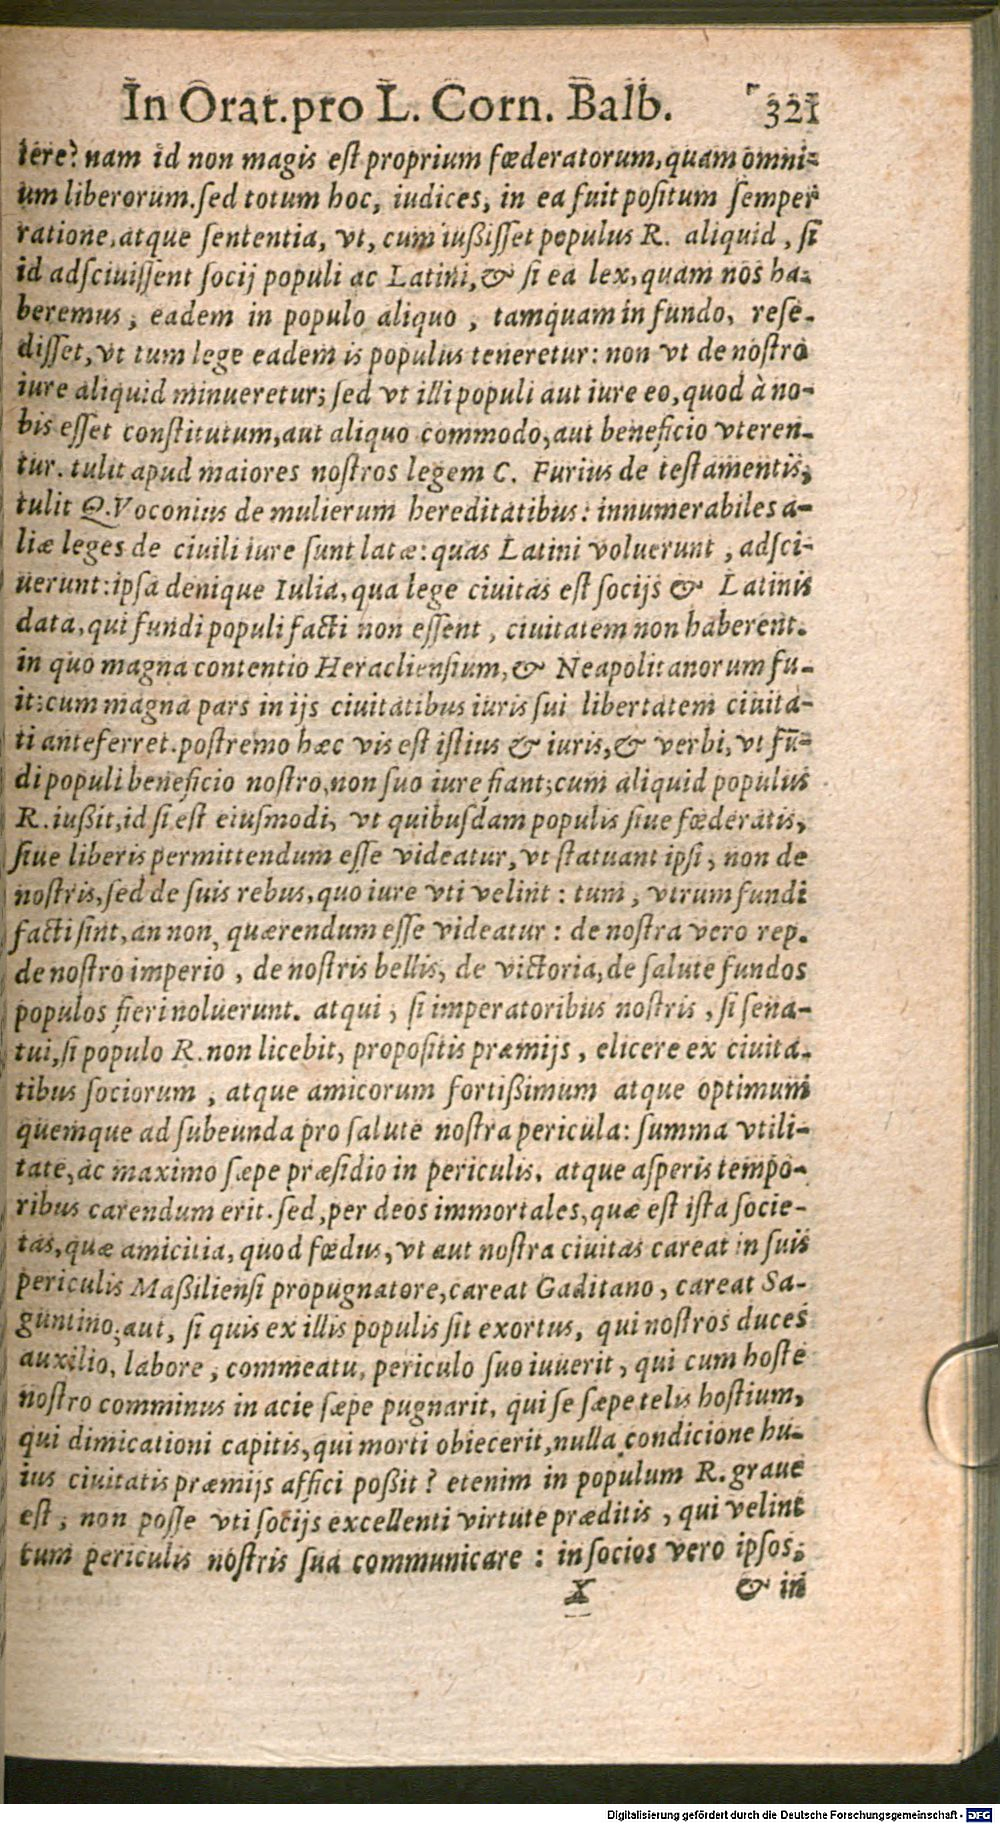 In Orat. pro L. Corn. Balb. 321
tere? nam id non magis est proprium fœderatorum, quam omni-
um liberorum. sed totum hoc, iudices, in ea fuit positum semper
ratione, atque sententia, vt, cum iußisset populus R. aliquid, si
id adsciuissent socij populi ac Latini, & si ea lex, quam nos ha-
beremus, eadem in populo aliquo, tamquam in fundo, rese-
disset, vt tum lege eadem is populus teneretur: non vt de nostro
iure aliquid minueretur; sed vt illi populi aut iure eo, quod à no-
bis esset constitutum, aut aliquo commodo, aut beneficio vteren-
tur. tulit apud maiores nostros legem C. Furius de testamentis,
tulit Q. Voconius de mulierum hereditatibus: innumerabiles a-
liæ leges de ciuili iure sunt latæ: quas Latini voluerunt, adsci-
uerunt: ipsa denique Iulia, qua lege ciuitas est socijs & Latinis
data, qui fundi populi facti non essent, ciuitatem non haberent.
in quo magna contentio Heracliensium, & Neapolitanorum fu-
it: cum magna pars in ijs ciuitatibus iuris sui libertatem ciuita-
ti anteferret. postremo hæc vis est istius & iuris, & verbi, vt fū-
di populi beneficio nostro, non suo iure fiant; cum aliquid populus
R. iußit, id si est eiusmodi, vt quibusdam populis siue fœderatis,
siue liberis permittendum esse videatur, vt statuant ipsi, non de
nostris, sed de suis rebus, quo iure vti velint: tum, vtrum fundi
facti sint, an non, quærendum esse videatur: de nostra vero rep.
de nostro imperio, de nostris bellis, de victoria, de salute fundos
populos fieri noluerunt. atqui, si imperatoribus nostris, si sena-
tui, si populo R. non licebit, propositis præmijs, elicere ex ciuita-
tibus sociorum, atque amicorum fortißimum atque optimum
quemque ad subeunda pro salute nostra pericula: summa vtili-
tate, ac maximo sæpe præsidio in periculis, atque asperis tempo-
ribus carendum erit. sed, per deos immortales, quæ est ista socie-
tas, quæ amicitia, quod fœdus, vt aut nostra ciuitas careat in suis
periculis Maßiliensi propugnatore, careat Gaditano, careat Sa-
guntino; aut, si quis ex illis populis sit exortus, qui nostros duces
auxilio, labore, commeatu, periculo suo iuuerit, qui cum hoste
nostro comminus in acie sæpe pugnarit, qui se sæpe telis hostium,
qui dimicationi capitis, qui morti obiecerit, nulla condicione hu-
ius ciuitatis præmijs affici poßit? etenim in populum R. graue
est, non posse vti socijs excellenti virtute præditis, qui velint
cum periculis nostris sua communicare: in socios vero ipsos,
X & in
Digitalisierung gefördert durch die Deutsche Forschungsgemeinschaft - DFG